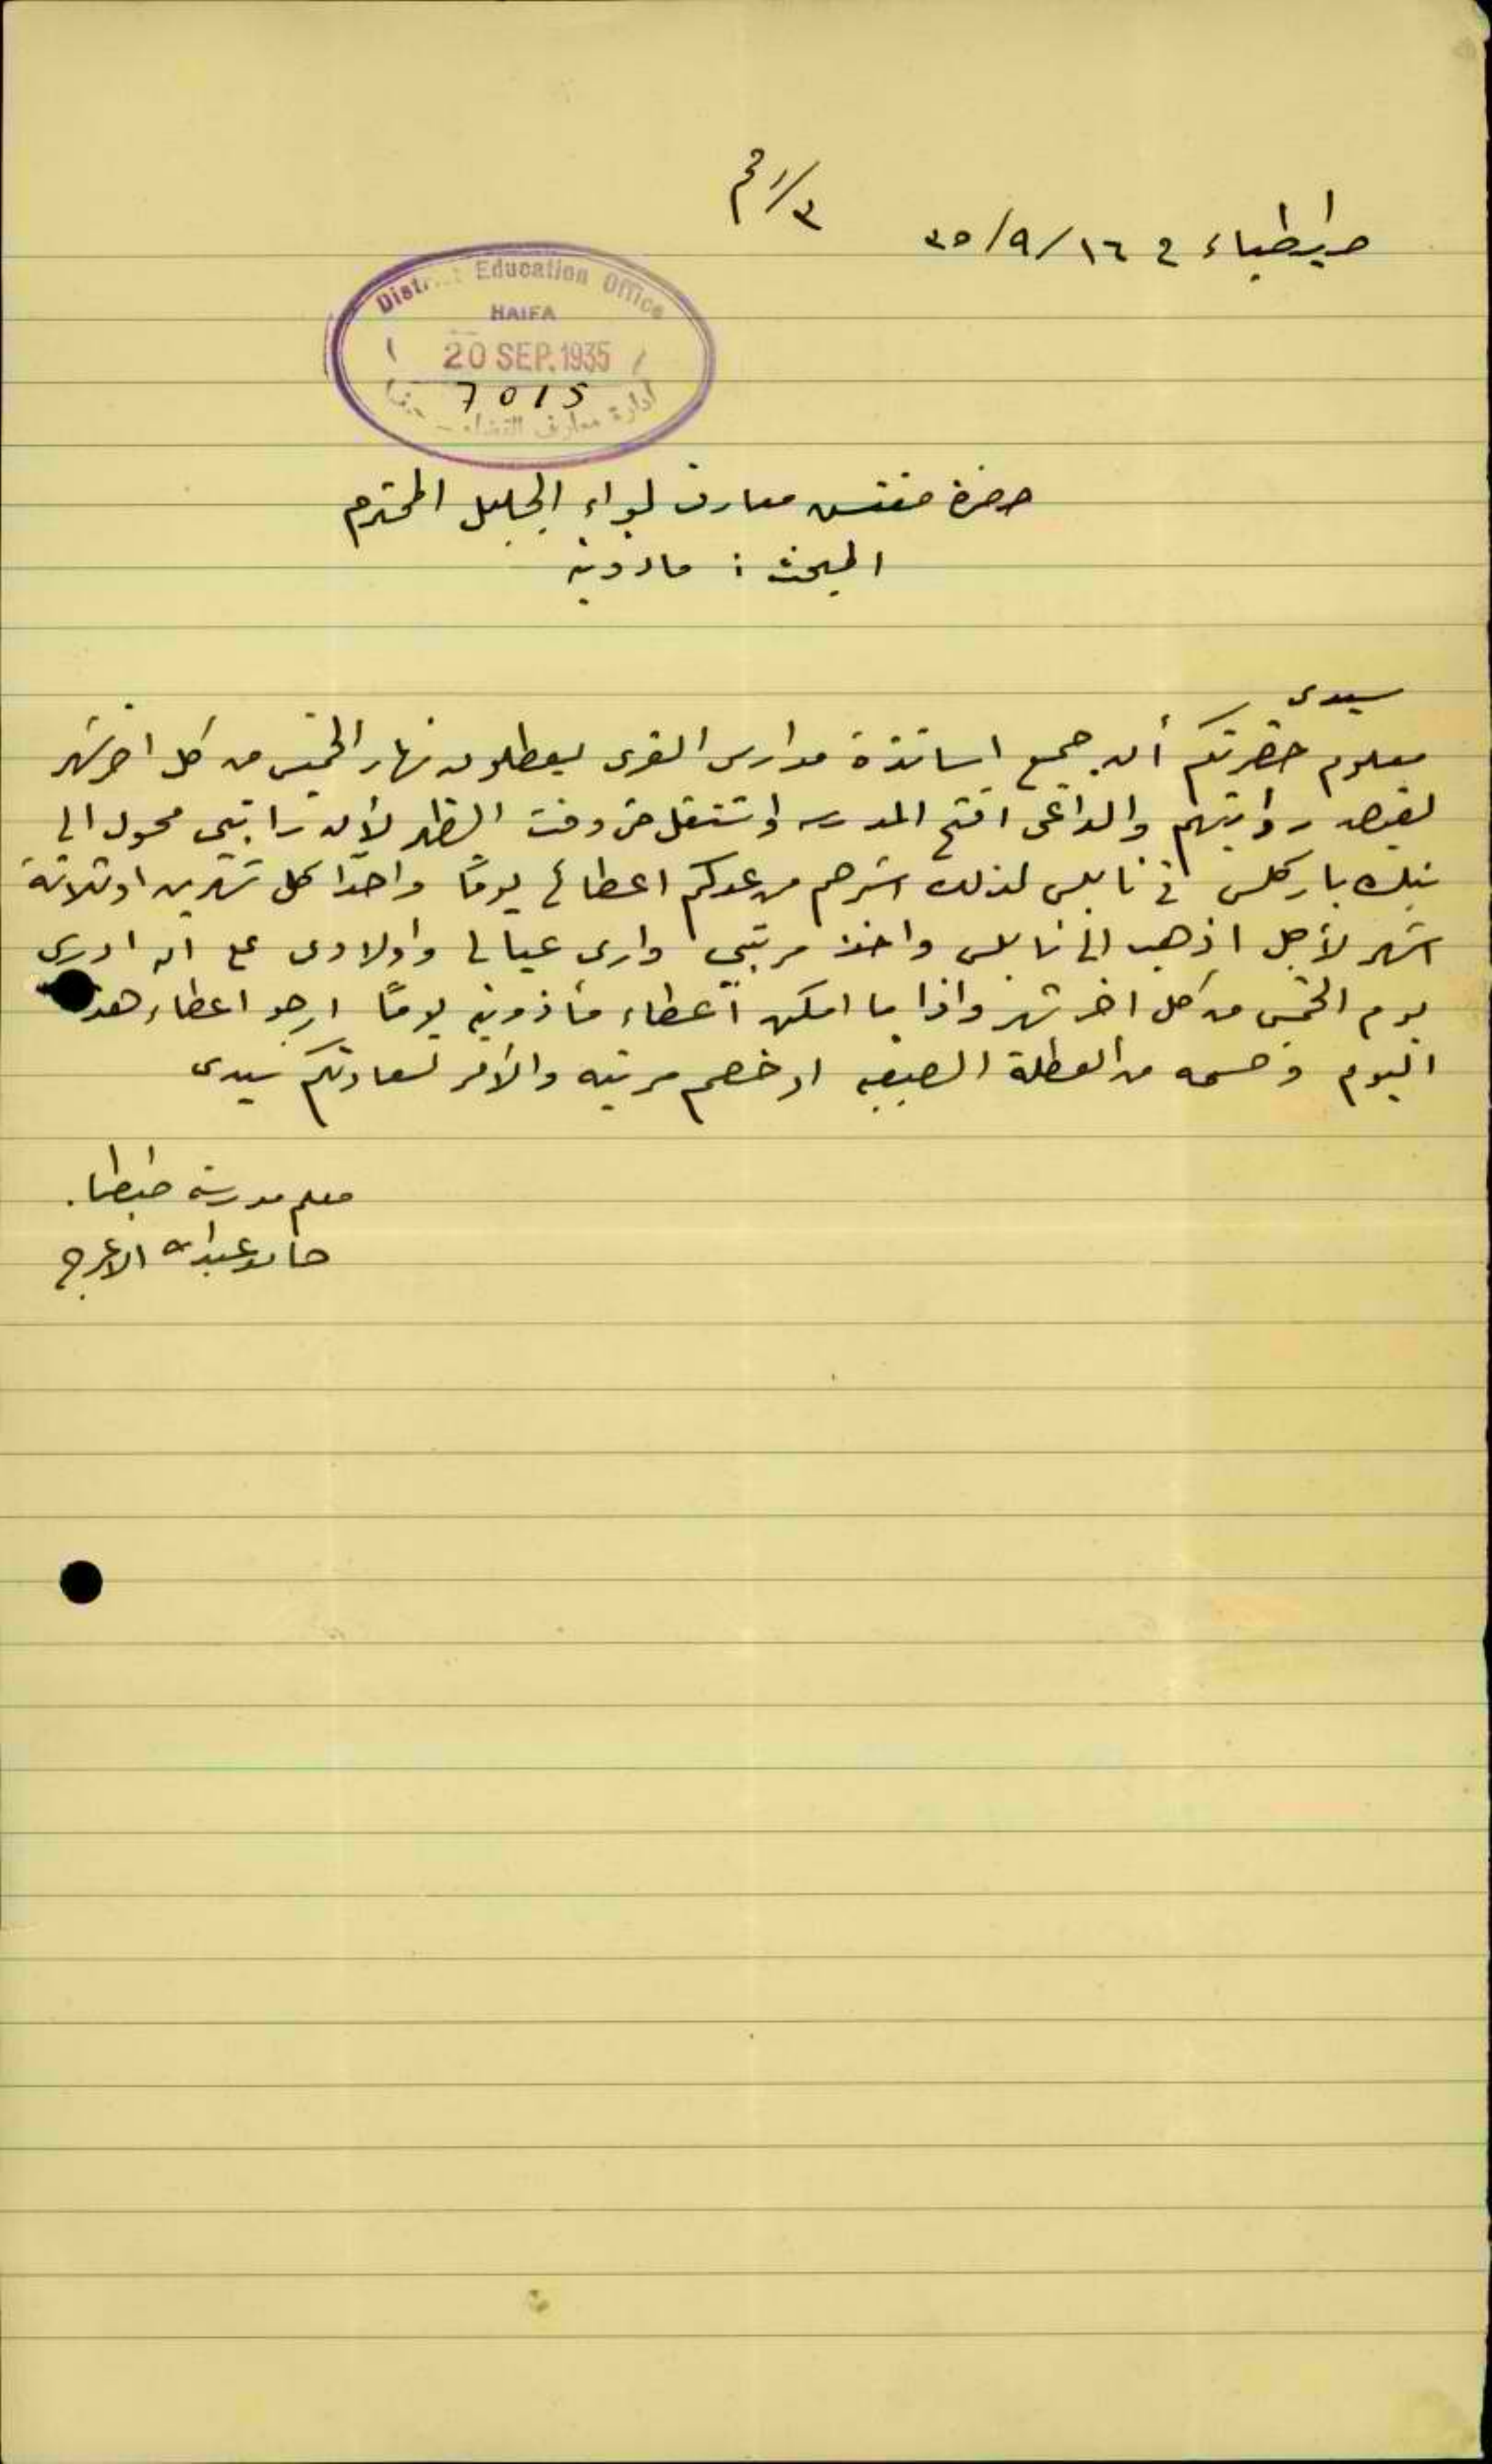 ٣/١م
في ١٦/٩/٣٥
District Education Office
HAIFA
20 SEP. 1935
7015
ادارة معارف القضاء - حيفا
حضرة مفتش معارف لواء الجليل المحترم
المبحث : ماذونية
سيدي
معلوم حضرتكم أن جميع اساتذة مدارس القرى يعطلون نهار الخميس من كل اخر شهر
لقبض رواتبهم والداعي افتح المدرسه واشتغل حتى وقت الظهر لأن راتبي محول الى
بنك باركلس في نابلس لذلك استرحم من عدلكم اعطائي يوماً واحداً كل شهرين او ثلاثة
اشهر لأجل اذهب الى نابلس واخذ مرتبي وارى عيالي واولادي على ان ادرس
يوم الخميس من كل اخر شهر واذا ما امكن اعطاء مأذونية يوماً ارجو اعطاء هذا
اليوم وحسمه من العطلة الصيفيه او خصم مرتبه والأمر لسعادتكم سيدي
معلم مدرسة
عبدالله الاعرج